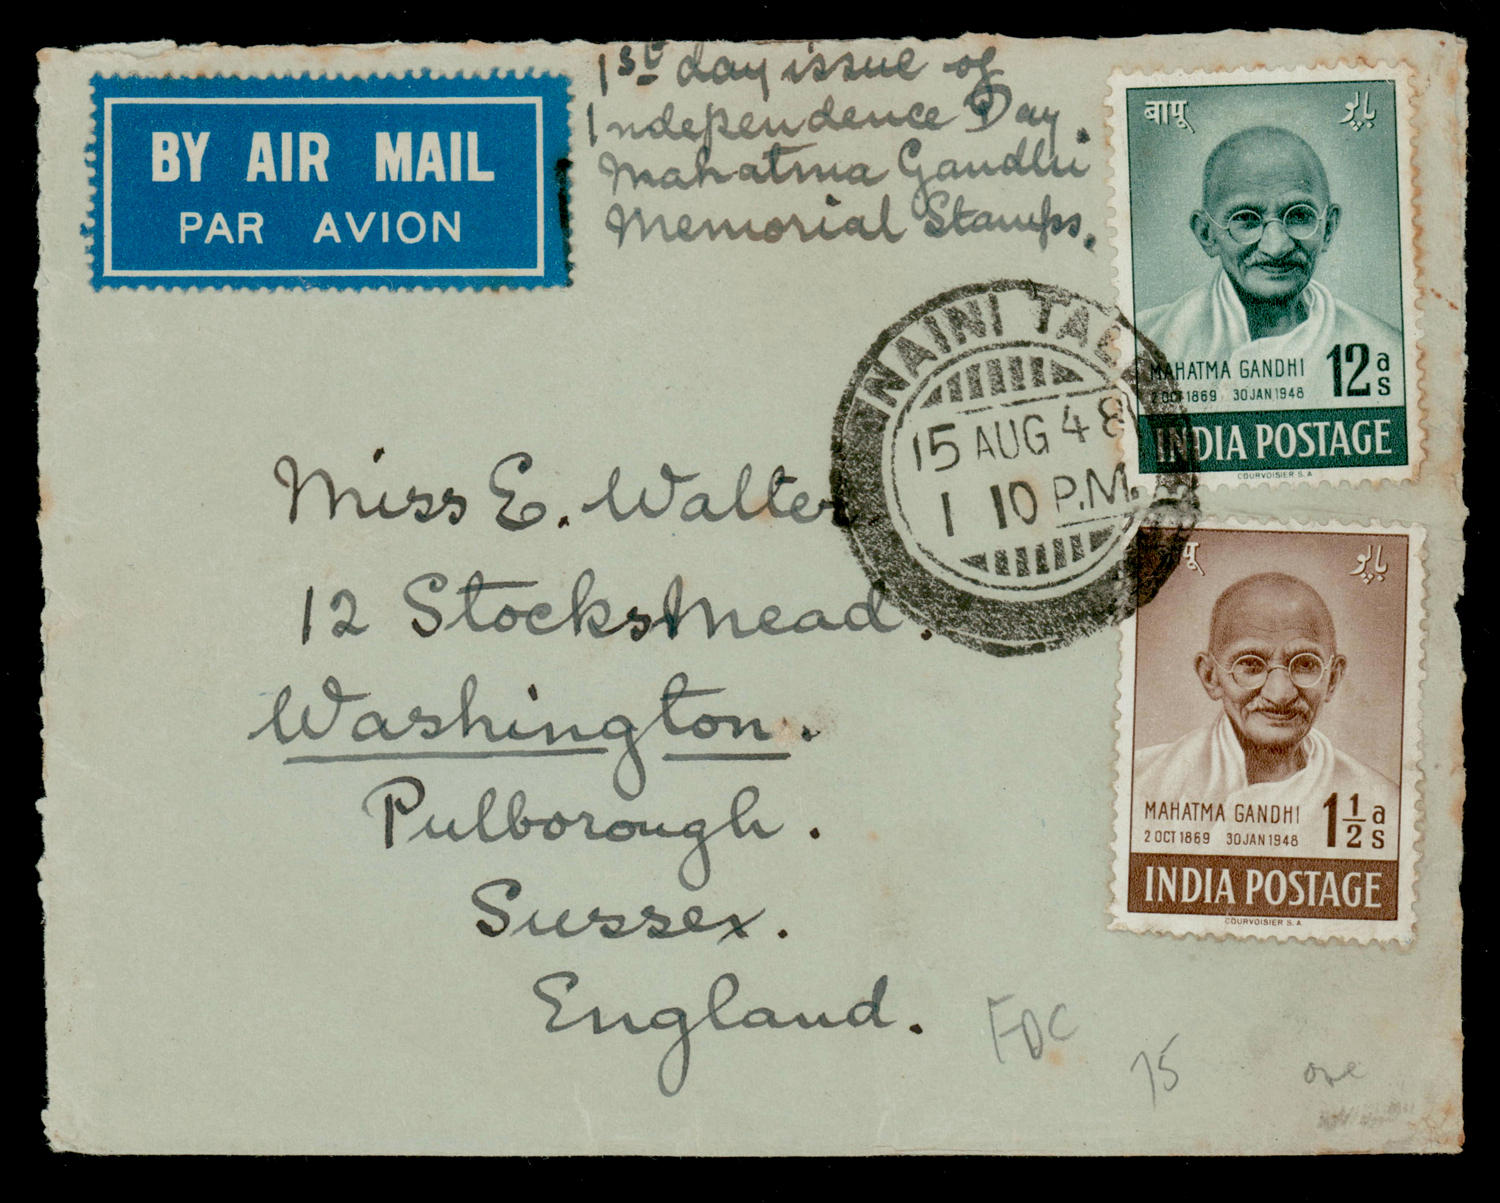 BY AIR MAIL
PAR AVION
1st day issue of
Independence Day.
Mahatma Gandhi
Memorial Stamps.
बापू باپو
MAHATMA GANDHI 12 as
2 OCT 1869 30 JAN 1948
INDIA POSTAGE
COURVOISIER S.A
NAINI TAL
15 AUG 48
1 10 P.M.
बापू باپو
MAHATMA GANDHI 1 1/2 as
2 OCT 1869 30 JAN 1948
INDIA POSTAGE
COURVOISIER S.A
Miss E. Walter
12 Stocks Mead.
Washington.
Pulborough.
Sussex.
England.
FDC
75